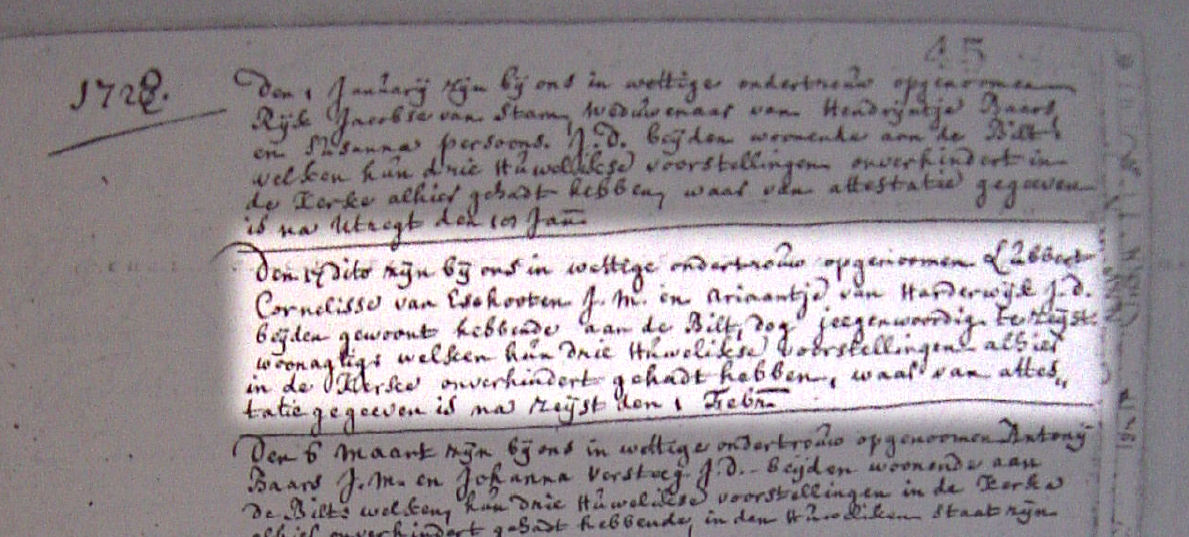 45
1728.
Den 1 Januarij zijn bij ons in wettige ondertrouw opgenoomen
Rijk Jacobse van Stam, Weduwenaar van Hendrijntje Baars
en Susanna persoons. J.D. beijden woonende aan de Bilt
welken hun drie Huwelikse voorstellingen onverhindert in
de Kerke alhier gehadt hebben, waar van attestatie gegeeven
is na Utregt den 19 Jan.
Den 17 dito zijn bij ons in wettige ondertrouw opgenoomen Lubbert
Cornelisse van Eschooten J.M. en Ariaantje van Harderwijk J.D.
beijden gewoont hebbende aan de Bilt, dog jeegenwoordig te Zeijst
woonagtig, welken hun drie Huwelikse voorstellingen alhier
in de Kerke onverhindert gehadt hebben, waar van attes„
tatie gegeeven is na Zeijst den 1 Febr.
Den 6 Maart zijn bij ons in wettige ondertrouw opgenoomen Antonij
Baars J.M. en Johanna Versteeg J.D. beijden woonende aan
de Bilt: welken hun drie Huwelikse voorstellingen in de Kerke
alhier onverhindert gehadt hebbende, in den Huweliken staat zijn